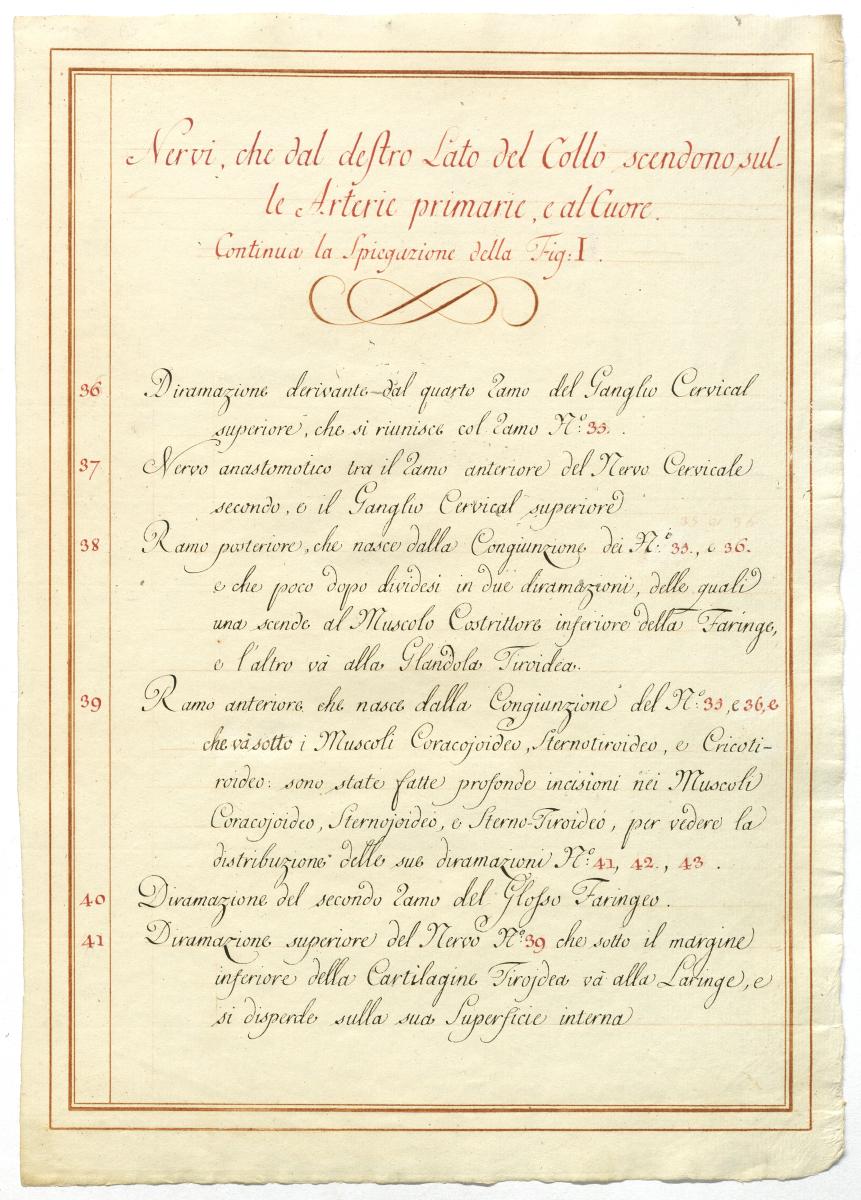 Nervi, che dal destro Lato del Collo scendono sul-
le Arterie primarie, e al Cuore.
Continua la Spiegazione della Fig: I.
36 Diramazione derivante dal quarto Ramo del Ganglio Cervical
superiore, che si riunisce col Ramo N.º 35.
37 Nervo anastomotico tra il Ramo anteriore del Nervo Cervicale
secondo, e il Ganglio Cervical superiore
38 Ramo posteriore, che nasce dalla Congiunzione dei N.i 35., e 36.
e che poco dopo dividesi in due diramazioni, delle quali
una scende al Muscolo Costrittore inferiore della Faringe,
e l'altro và alla Glandola Tiroidea.
39 Ramo anteriore che nasce dalla Congiunzione del N.º 35, e 36, e
che và sotto i Muscoli Coracojoideo, Sternotiroideo, e Cricoti-
roideo: sono state fatte profonde incisioni nei Muscoli
Coracojoideo, Sternojoideo, e Sterno-Tiroideo, per vedere la
distribuzione delle sue diramazioni N.º 41, 42., 43.
40 Diramazione del secondo Ramo del Glosso Faringeo.
41 Diramazione superiore del Nervo N.º 39 che sotto il margine
inferiore della Cartilagine Tirojdea và alla Laringe, e
si disperde sulla sua Superficie interna